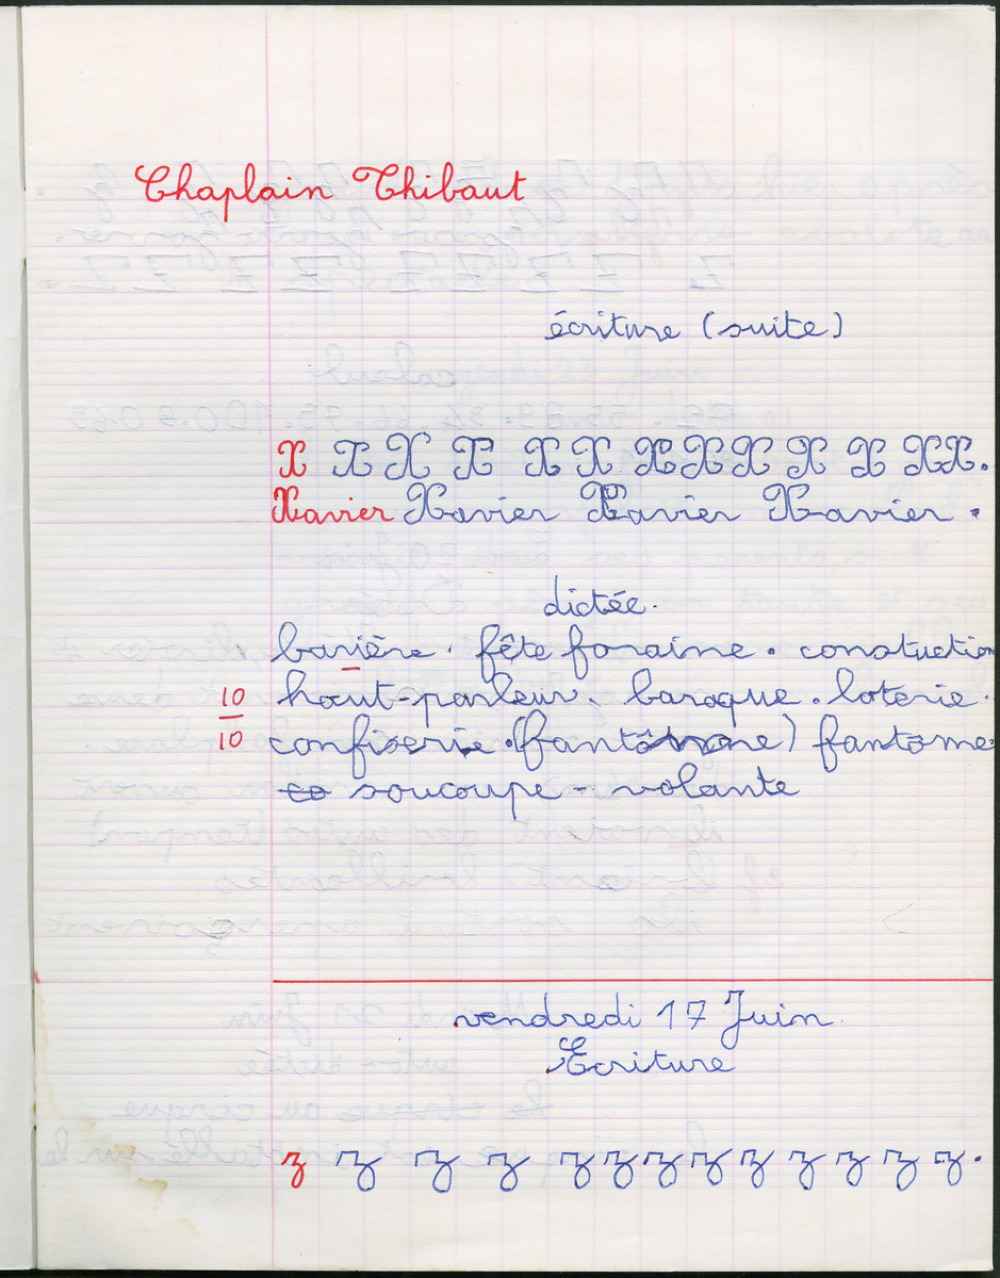 Chaplain Thibaut
écriture (suite)
X X X X X X X X X X X X X.
Xavier Xavier Xavier Xavier.
dictée.
barière. fête foraine. constuction
10 haut-parleur. baraque. loterie.
10 confiserie. (fantôme) fantôme
co soucoupe - volante
vendredi 17 Juin
Ecriture
z z z z z z z z z z z z z.